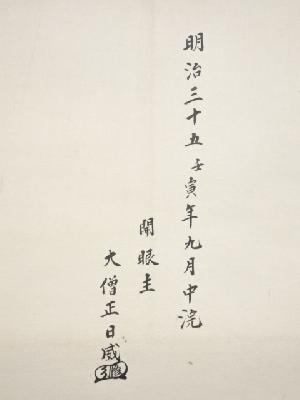 明治三十五壬寅年九月中浣
開眼主
大僧正日咸